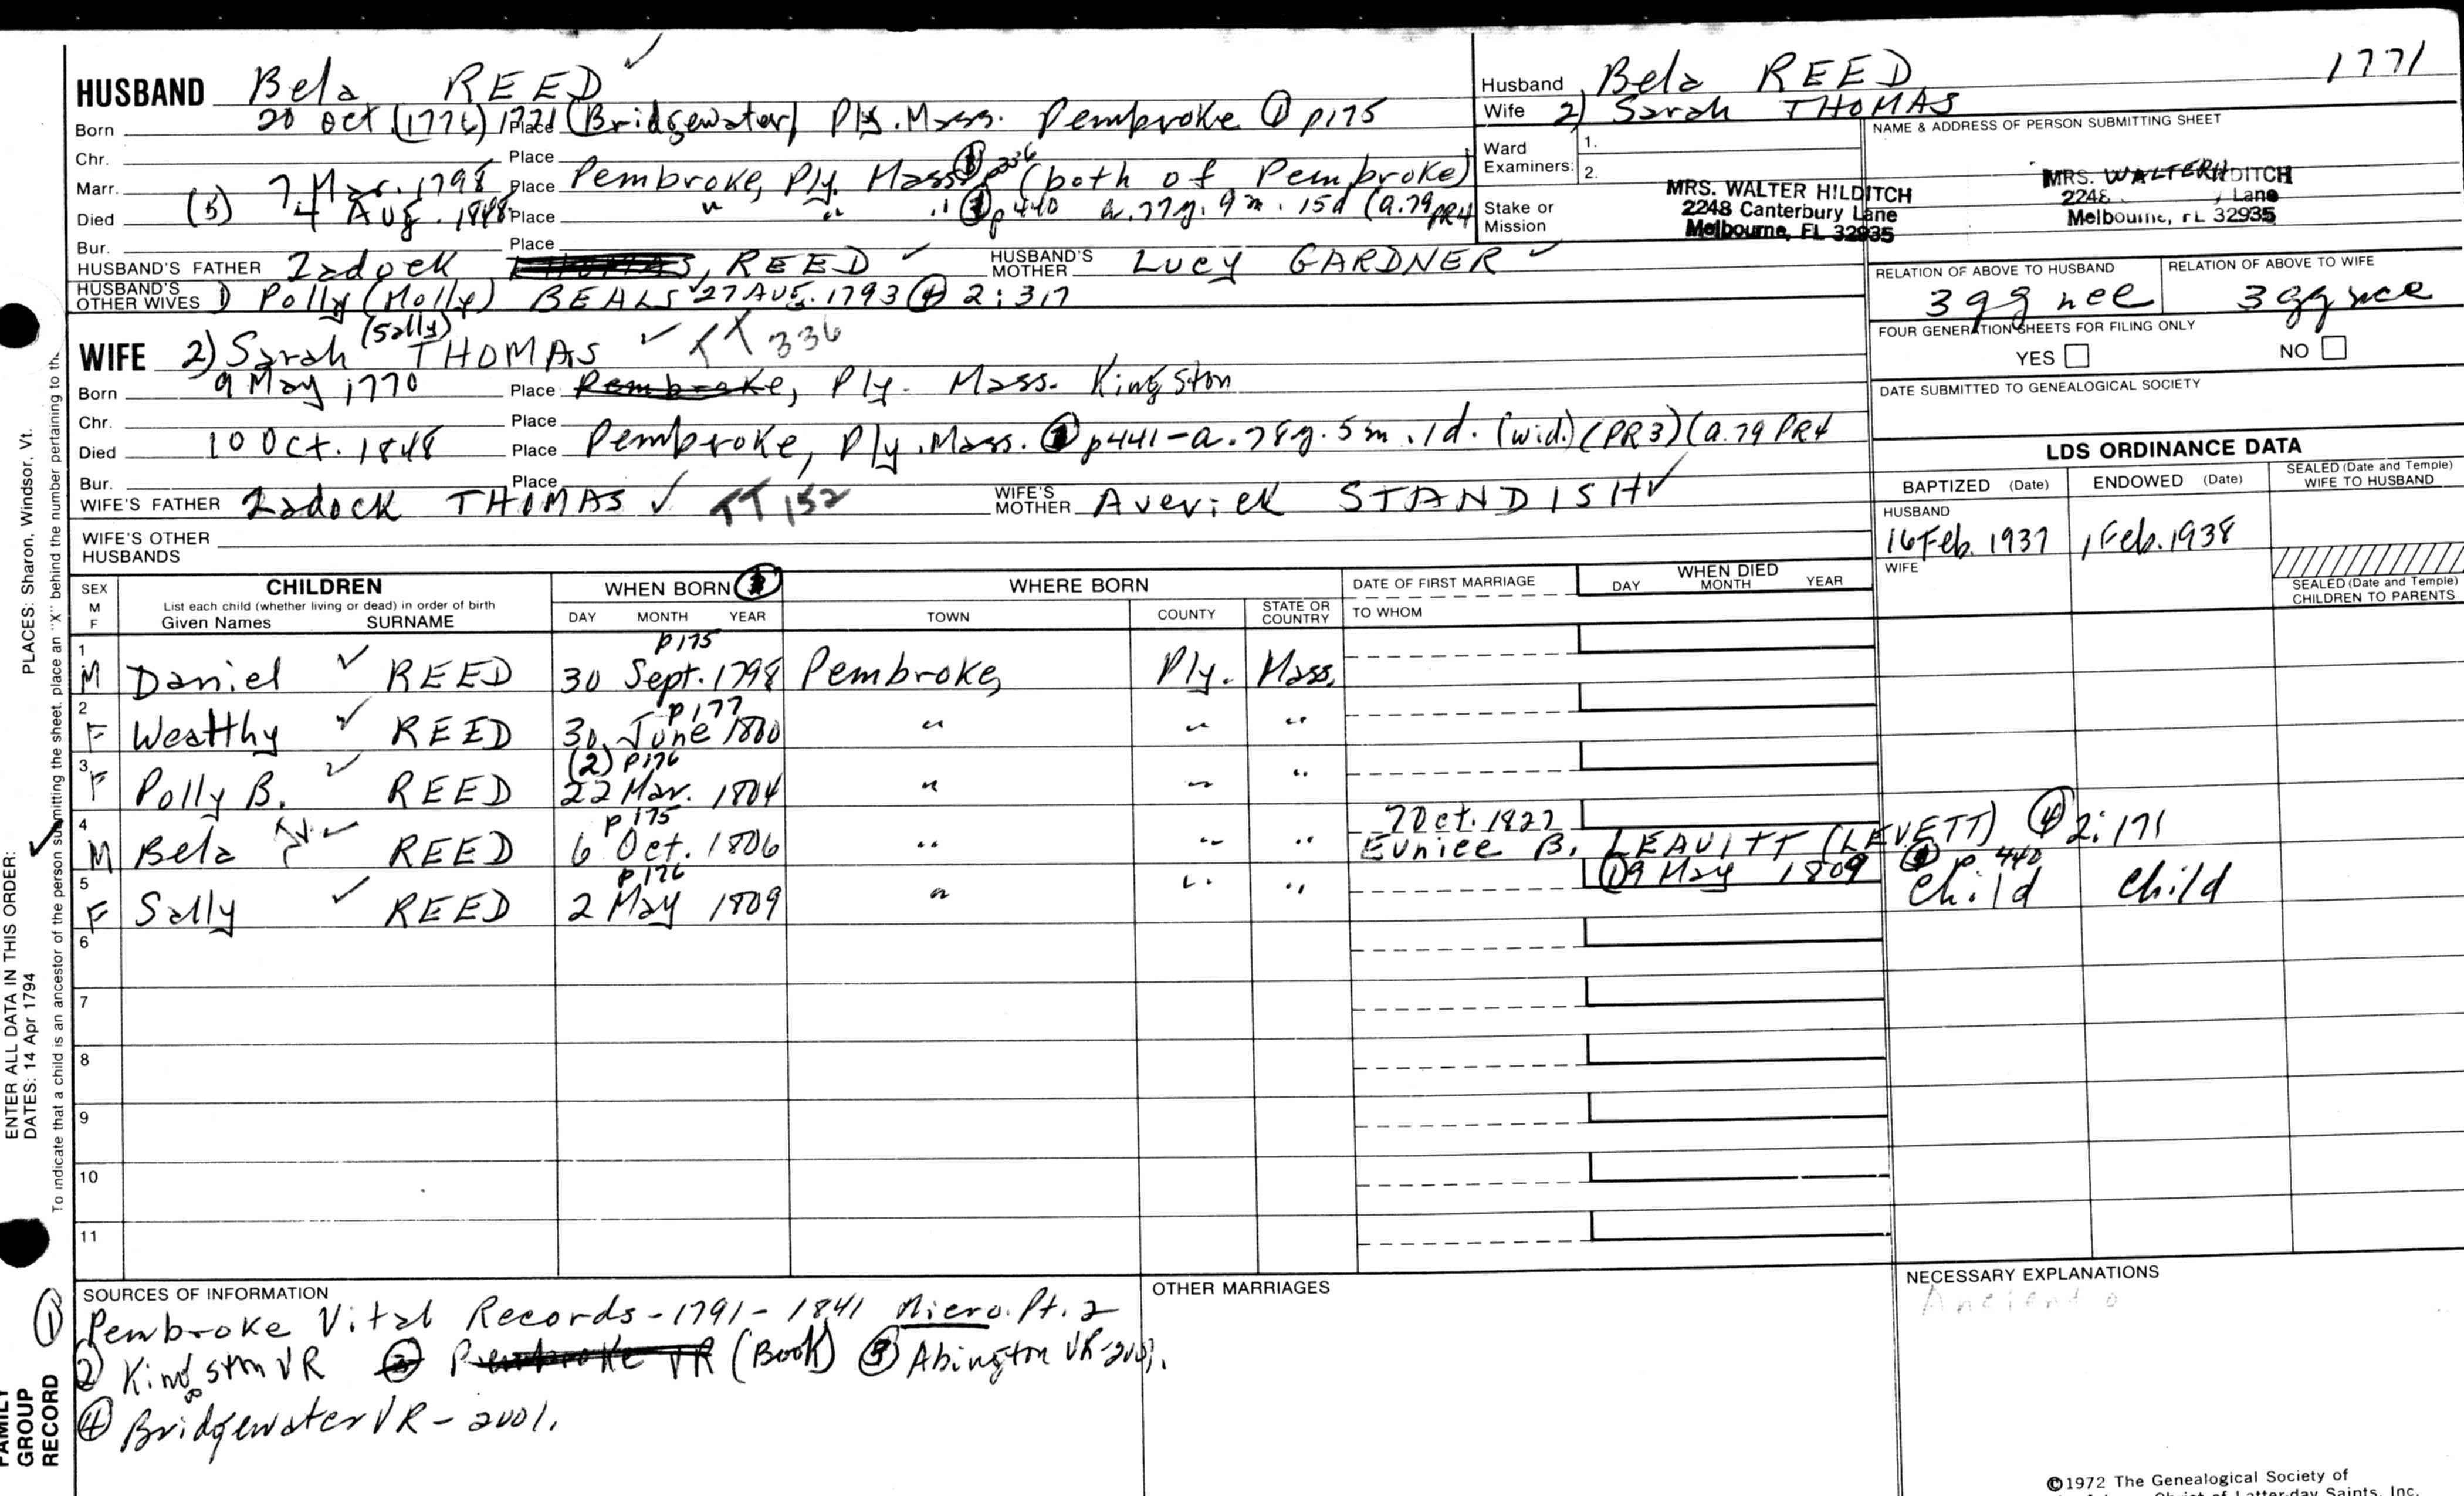 HUSBAND Bela REED ✓
Born 20 Oct (1776) 1771 Place (Bridgewater) Ply. Mass. Pembroke ① p175
Chr. Place
Marr. 7 Mar. 1798 Place Pembroke, Ply. Mass. p336 (both of Pembroke)
Died (5) 4 Aug. 1848 Place " " " p440 a.77y.9m.15d (a.79 PR4
Bur. Place
HUSBAND'S FATHER Zadock REED ✓ HUSBAND'S MOTHER Lucy GARDNER ✓
HUSBAND'S OTHER WIVES 1) Polly (Molly) BEALS ✓ 27 Aug. 1793 ④ 2:317
WIFE 2) Sarah (Sally) THOMAS ✓ 336
Born 9 May 1770 Place Pembroke, Ply. Mass. Kingston
Chr. Place
Died 10 Oct. 1848 Place Pembroke, Ply. Mass. ① p441-a.78y.5m.1d. (wid.) (PR3) (a.79 PR4
Bur. Place
WIFE'S FATHER Zadock THOMAS ✓ TT 152 WIFE'S MOTHER Averick STANDISH ✓
WIFE'S OTHER HUSBANDS
Husband Bela REED 1771
Wife 2) Sarah THOMAS
Ward Examiners: 1.
2.
Stake or Mission
MRS. WALTER HILDITCH
2248 Canterbury Lane
Melbourne, FL 32935
NAME & ADDRESS OF PERSON SUBMITTING SHEET
MRS. WALTER H DITCH
2248 Lane
Melbourne, FL 32935
RELATION OF ABOVE TO HUSBAND RELATION OF ABOVE TO WIFE
3 gg nce 3 gg nce
FOUR GENERATION SHEETS FOR FILING ONLY
YES NO
DATE SUBMITTED TO GENEALOGICAL SOCIETY
LDS ORDINANCE DATA
BAPTIZED (Date) ENDOWED (Date) SEALED (Date and Temple) WIFE TO HUSBAND
HUSBAND
16 Feb. 1937 1 Feb. 1938
WIFE
SEALED (Date and Temple) CHILDREN TO PARENTS
SEX M F CHILDREN WHEN BORN WHERE BORN DATE OF FIRST MARRIAGE WHEN DIED
List each child (whether living or dead) in order of birth
Given Names SURNAME DAY MONTH YEAR TOWN COUNTY STATE OR COUNTRY TO WHOM DAY MONTH YEAR
p175
1 M Daniel ✓ REED 30 Sept. 1798 Pembroke, Ply. Mass.
p177
2 F Wealthy ✓ REED 30 June 1800 " " "
(2) p176
3 F Polly B. ✓ REED 22 Mar. 1804 " " "
p175 7 Oct. 1827
4 M Bela ✓ REED 6 Oct. 1806 " " " Eunice B. LEAVITT (LEVETT) ④ 2:171
p176 ① 9 May 1809 p.440
5 F Sally ✓ REED 2 May 1809 " " " Child Child
6
7
8
9
10
11
SOURCES OF INFORMATION
① Pembroke Vital Records - 1791 - 1841 Micro. Pt. 2
② Kingston VR ③ Pembroke VR (Book) ⑤ Abington VR-2001.
④ Bridgewater VR - 2001.
OTHER MARRIAGES
NECESSARY EXPLANATIONS
©1972 The Genealogical Society of
Latter-day Saints, Inc.
ENTER ALL DATA IN THIS ORDER:
DATES: 14 Apr 1794
PLACES: Sharon, Windsor, Vt.
To indicate that a child is an ancestor of the person submitting the sheet, place an "X" behind the number pertaining to th
FAMILY
GROUP
RECORD